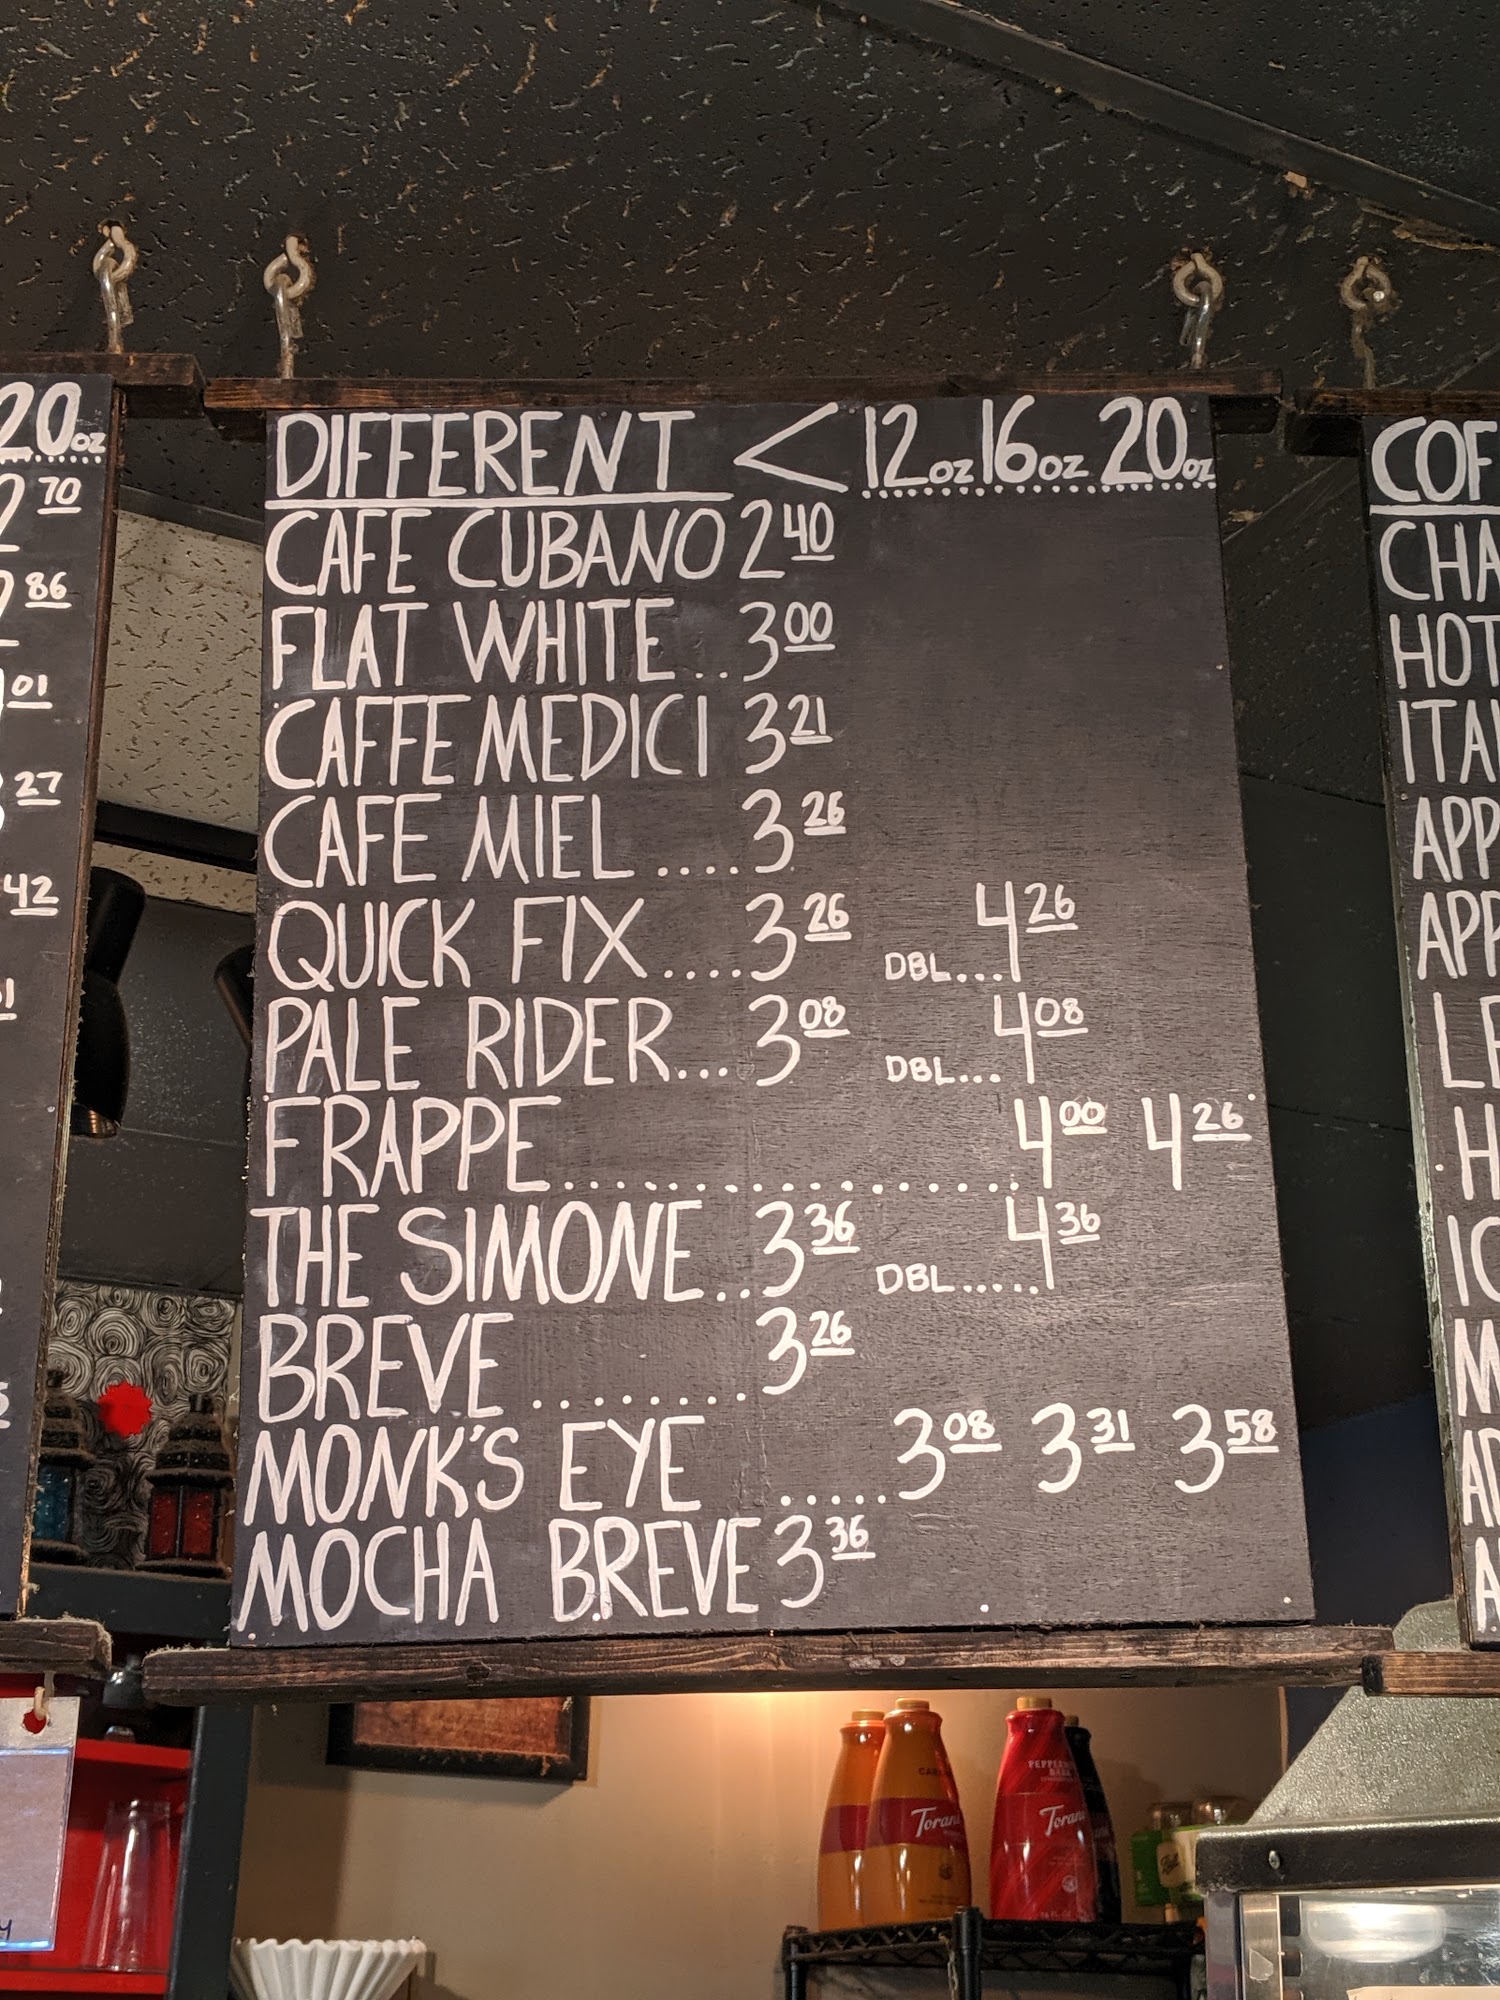 20oz
70
86
01
27
42
DIFFERENT < 12oz 16oz 20oz
CAFE CUBANO 2 40
FLAT WHITE.. 3 00
CAFFE MEDICI 3 21
CAFE MIEL .... 3 26
QUICK FIX .... 3 26 DBL... 4 26
PALE RIDER... 3 08 DBL... 4 08
FRAPPE.................. 4 00 4 26
THE SIMONE.. 3 36 DBL..... 4 36
BREVE ........ 3 26
MONK'S EYE ..... 3 08 3 31 3 58
MOCHA BREVE 3 36
COF
CHA
HOT
ITA
APP
APP
LE
H
IC
M
A
Torani
Torani